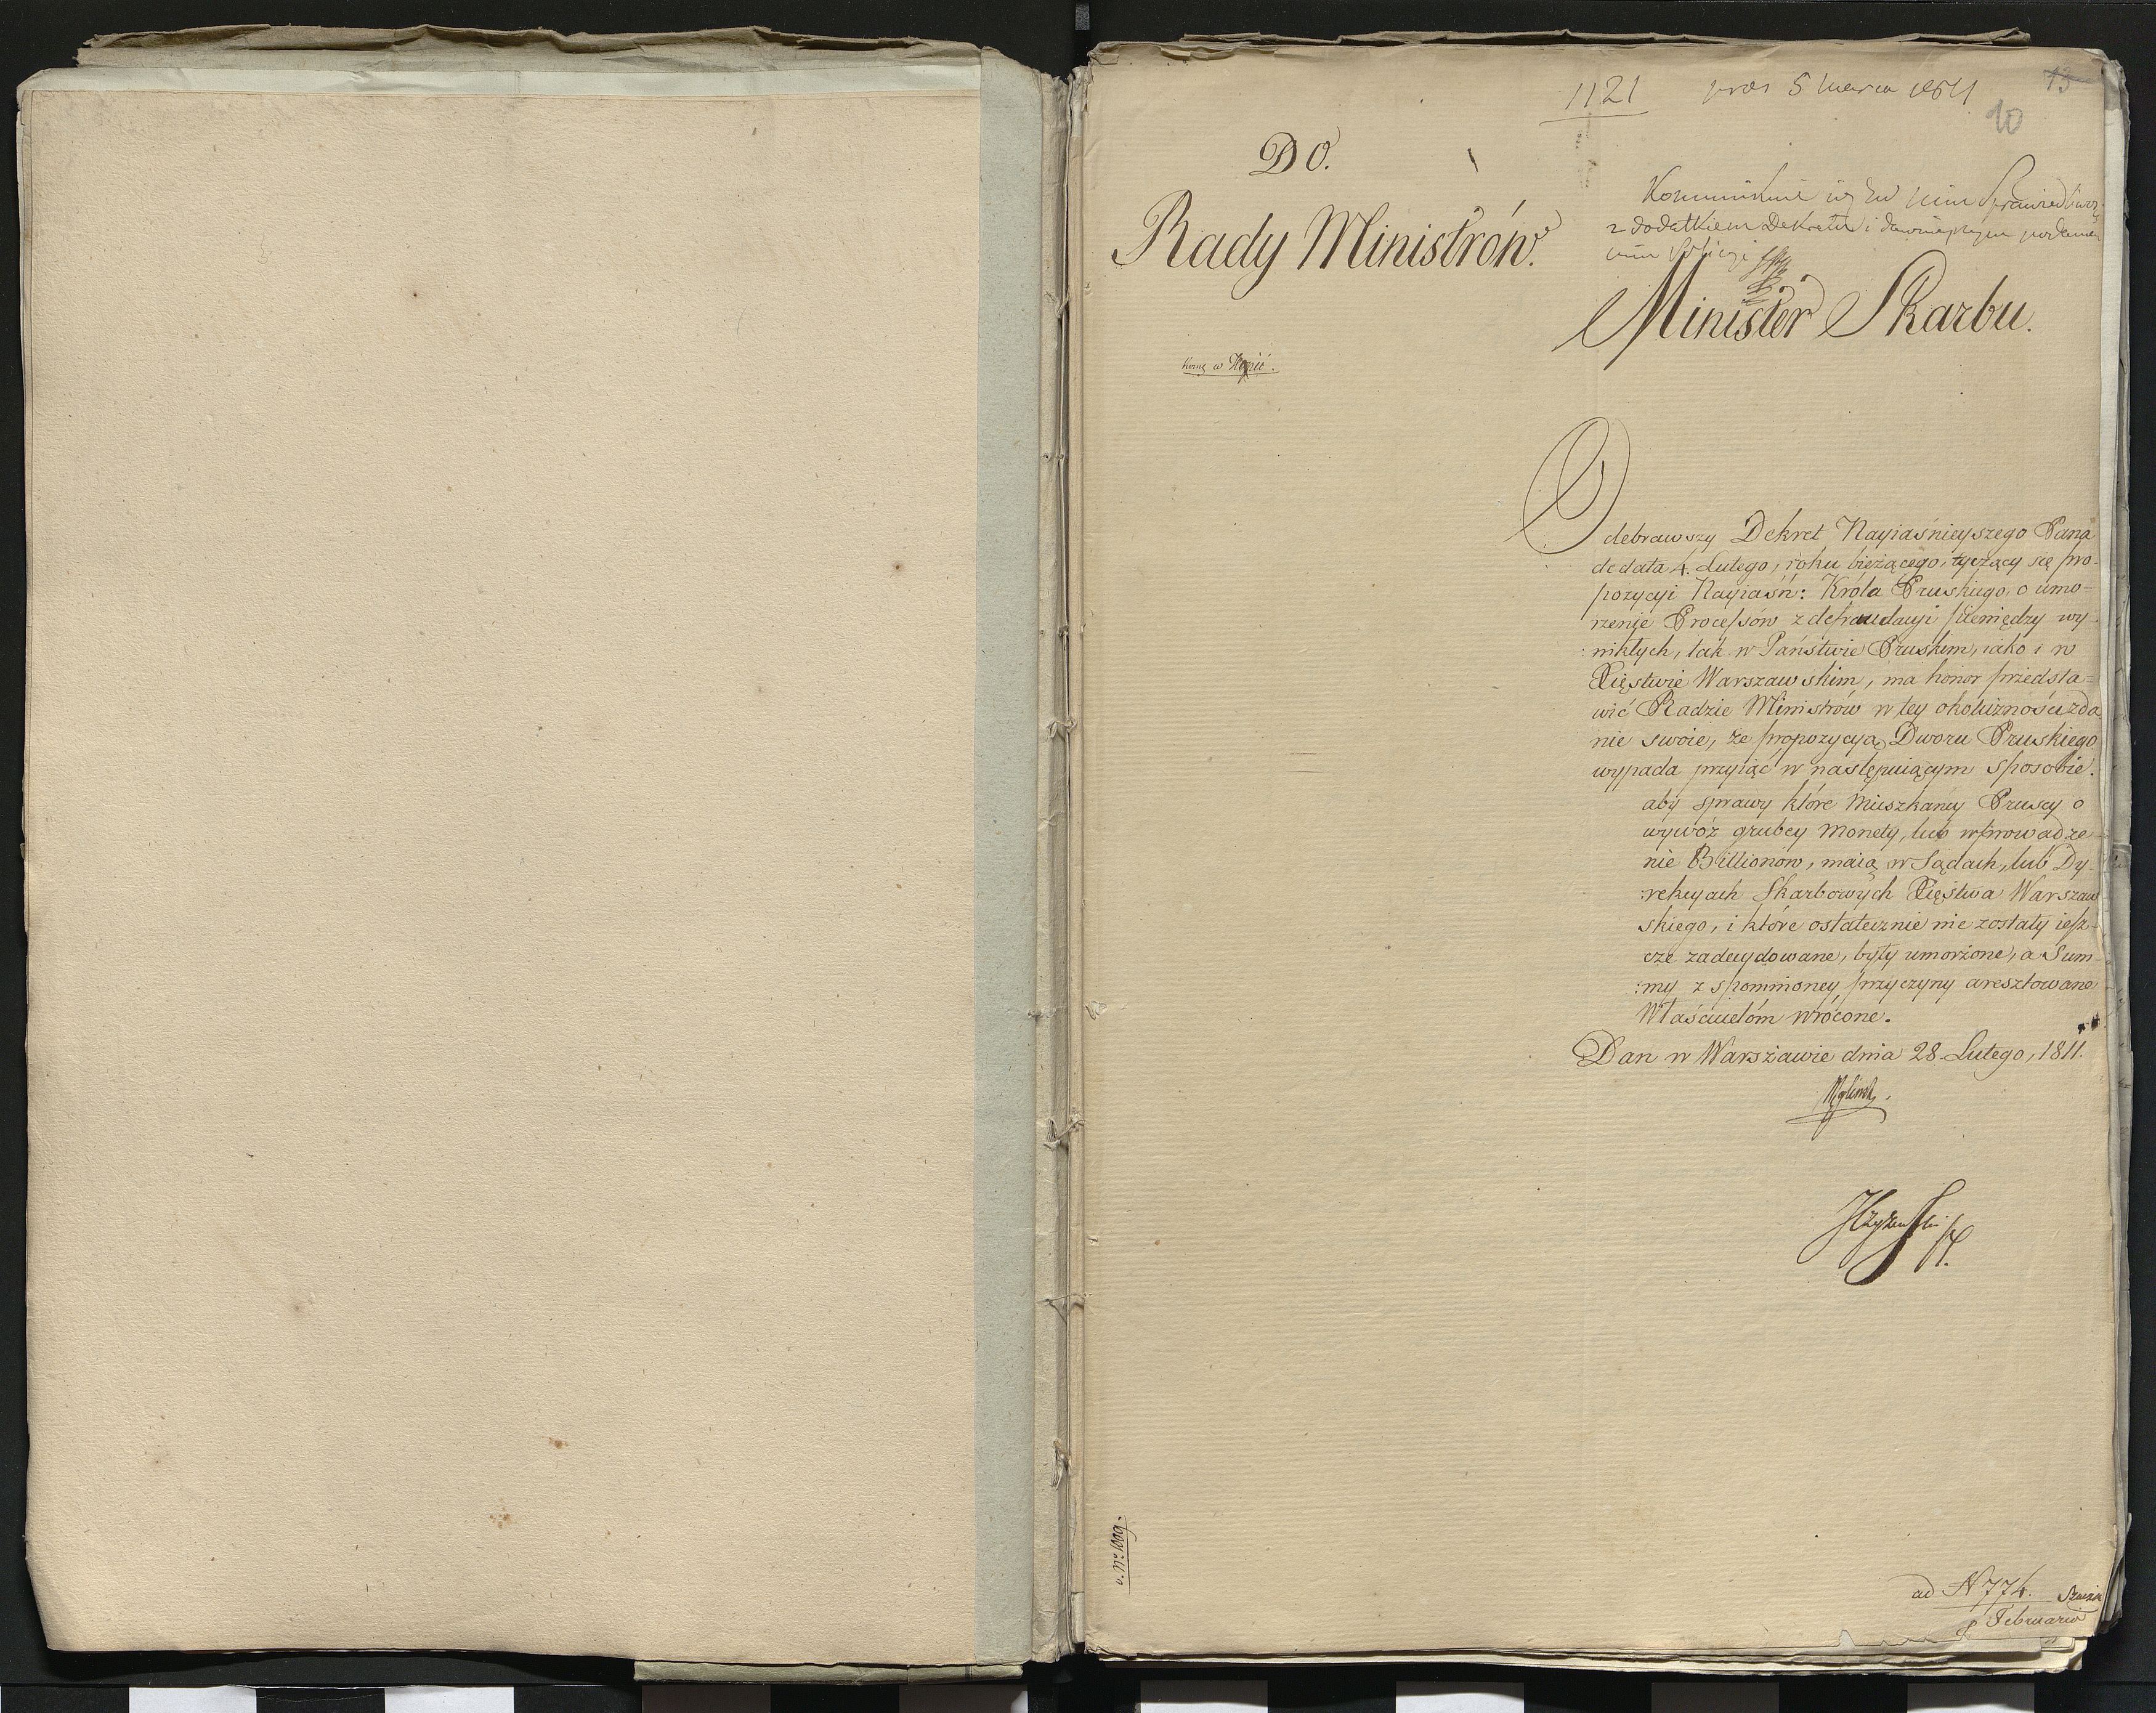 1121 5 1811 13
10
DO.
Rady Ministrów.
z dodatkiem Dekretu i
Minister Skarbu.
Odebrawszy Dekret Nayiaśnieyszego Pana
de data 4. Lutego, roku bieżącego, tyczący się pro-
pozycyi Nayiaśń: Króla Pruskiego, o umo-
rzenie Processów z defraudacyi pieniędzy wy-
:nikłych, tak w Państwie Pruskim, iako i w
Xięstwie Warszawskim, ma honor przedsta-
wić Radzie Ministrów w tey okoliczności zda
nie swoie, że propozycyą Dworu Pruskiego
wypada przyiąć w następuiącym sposobie.
aby sprawy które Mieszkańcy Pruscy o
wywóz grubey Monety, lub wprowadze-
nie Billionów, maią w Sądach, lub Dy-
:rekcyach Skarbowych Xięstwa Warszaw
skiego, i które ostatecznie nie zostały iesz-
cze zadecydowane, były umorzone, a Sum-
:my z spomnioney przyczyny aresztowane
Właścicielom wrócone.
Dan w Warszawie dnia 28. Lutego, 1811.
v. No 1009.
ad N 774.
Februarii